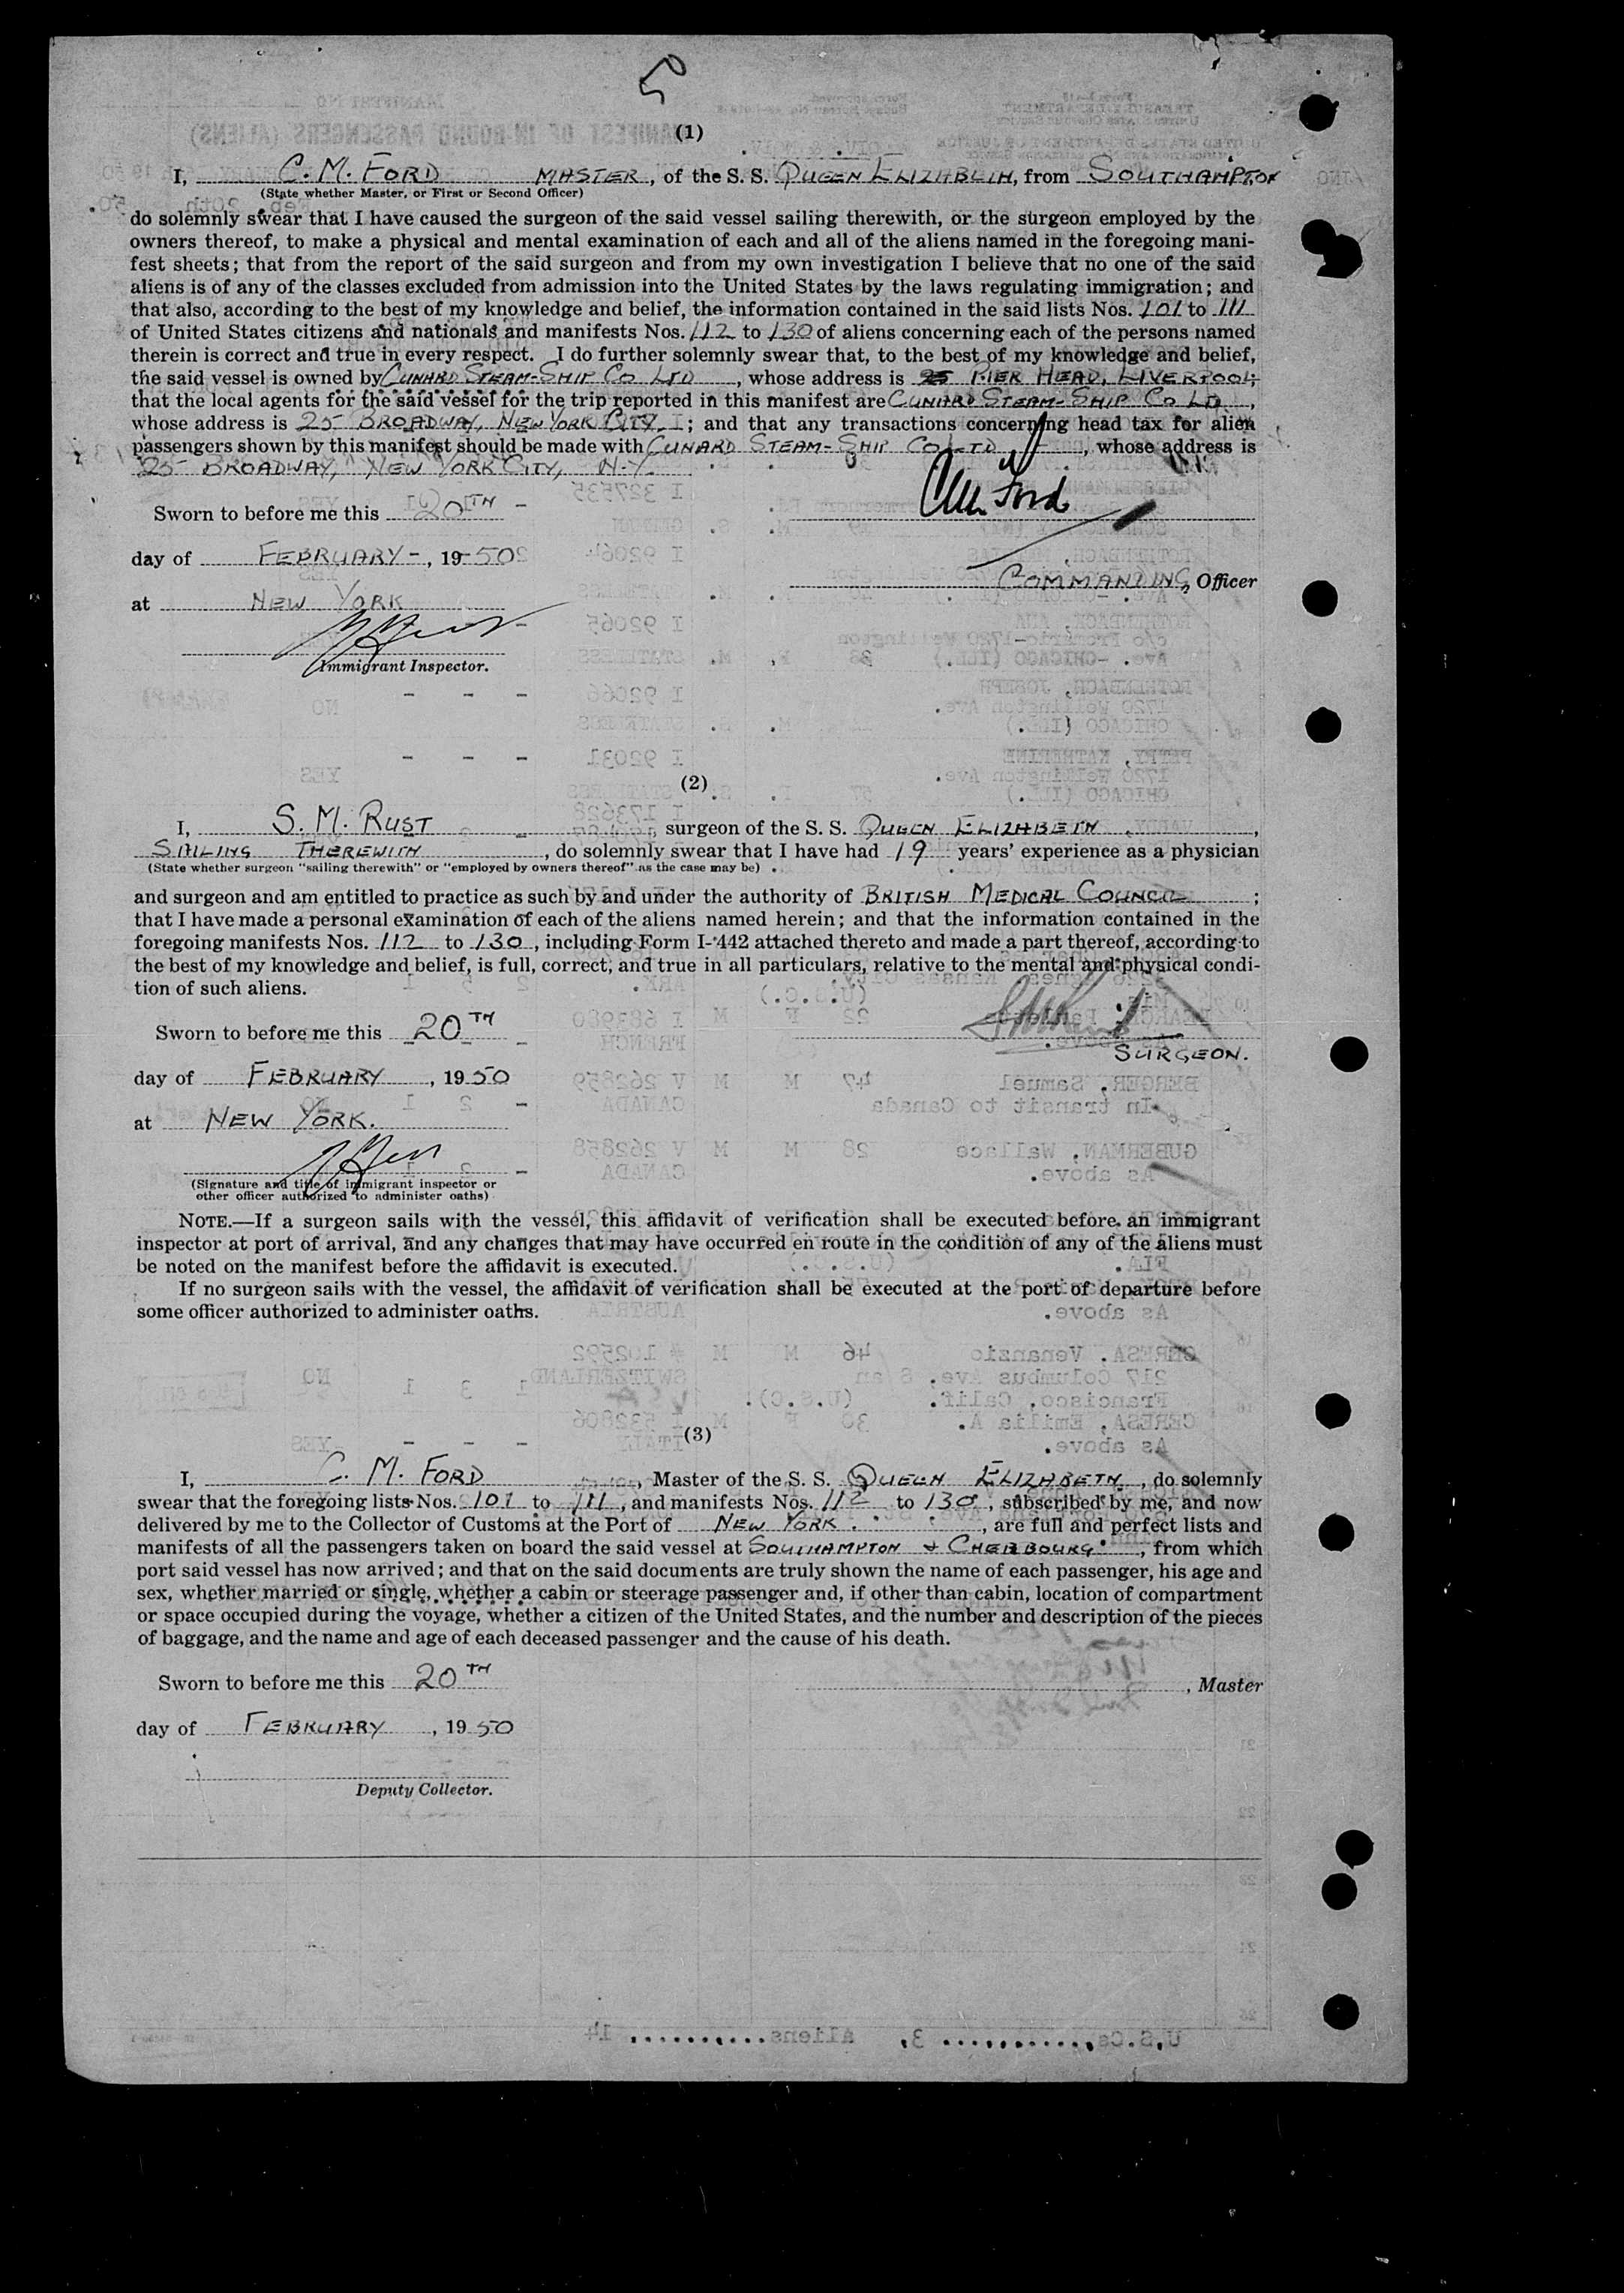 (1)
I, C. M. FORD MASTER, of the S. S. QUEEN ELIZABETH, from SOUTHAMPTON
(State whether Master, or First or Second Officer)
do solemnly swear that I have caused the surgeon of the said vessel sailing therewith, or the surgeon employed by the
owners thereof, to make a physical and mental examination of each and all of the aliens named in the foregoing mani-
fest sheets; that from the report of the said surgeon and from my own investigation I believe that no one of the said
aliens is of any of the classes excluded from admission into the United States by the laws regulating immigration; and
that also, according to the best of my knowledge and belief, the information contained in the said lists Nos. 101 to 111
of United States citizens and nationals and manifests Nos. 112 to 130 of aliens concerning each of the persons named
therein is correct and true in every respect. I do further solemnly swear that, to the best of my knowledge and belief,
the said vessel is owned by CUNARD STEAM-SHIP CO LTD, whose address is PIER HEAD, LIVERPOOL;
that the local agents for the said vessel for the trip reported in this manifest are CUNARD STEAM-SHIP CO LD,
whose address is 25 BROADWAY, NEW YORK CITY; and that any transactions concerning head tax for alien
passengers shown by this manifest should be made with CUNARD STEAM-SHIP CO LTD, whose address is
25 BROADWAY, NEW YORK CITY, N.Y.
Sworn to before me this 20TH
C M Ford
day of FEBRUARY-, 1950
COMMANDING, Officer
at NEW YORK
Immigrant Inspector.
(2)
I, S. M. RUST, surgeon of the S. S. QUEEN ELIZABETH,
SAILING THEREWITH, do solemnly swear that I have had 19 years' experience as a physician
(State whether surgeon "sailing therewith" or "employed by owners thereof" as the case may be)
and surgeon and am entitled to practice as such by and under the authority of BRITISH MEDICAL COUNCIL;
that I have made a personal examination of each of the aliens named herein; and that the information contained in the
foregoing manifests Nos. 112 to 130, including Form I-442 attached thereto and made a part thereof, according to
the best of my knowledge and belief, is full, correct, and true in all particulars, relative to the mental and physical condi-
tion of such aliens.
Sworn to before me this 20TH
SURGEON.
day of FEBRUARY, 1950
at NEW YORK.
(Signature and title of immigrant inspector or
other officer authorized to administer oaths)
NOTE.—If a surgeon sails with the vessel, this affidavit of verification shall be executed before an immigrant
inspector at port of arrival, and any changes that may have occurred en route in the condition of any of the aliens must
be noted on the manifest before the affidavit is executed.
If no surgeon sails with the vessel, the affidavit of verification shall be executed at the port of departure before
some officer authorized to administer oaths.
(3)
I, C. M. FORD, Master of the S. S. QUEEN ELIZABETH, do solemnly
swear that the foregoing lists Nos. 101 to 111, and manifests Nos. 112 to 130, subscribed by me, and now
delivered by me to the Collector of Customs at the Port of NEW YORK., are full and perfect lists and
manifests of all the passengers taken on board the said vessel at SOUTHAMPTON & CHERBOURG, from which
port said vessel has now arrived; and that on the said documents are truly shown the name of each passenger, his age and
sex, whether married or single, whether a cabin or steerage passenger and, if other than cabin, location of compartment
or space occupied during the voyage, whether a citizen of the United States, and the number and description of the pieces
of baggage, and the name and age of each deceased passenger and the cause of his death.
Sworn to before me this 20TH
, Master
day of FEBRUARY, 1950
Deputy Collector.